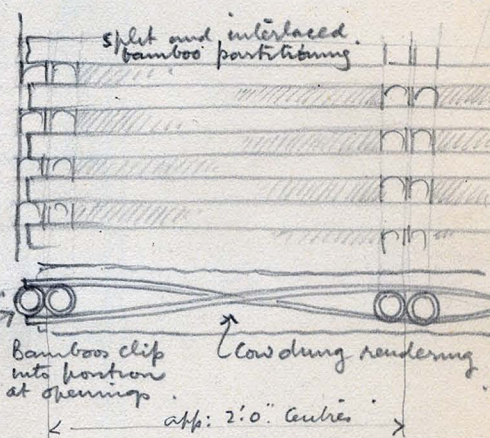 split and interlaced
bamboo partitioning
Bamboos clip
into position
at openings.
Cow dung rendering
app: 2'.0" Centres